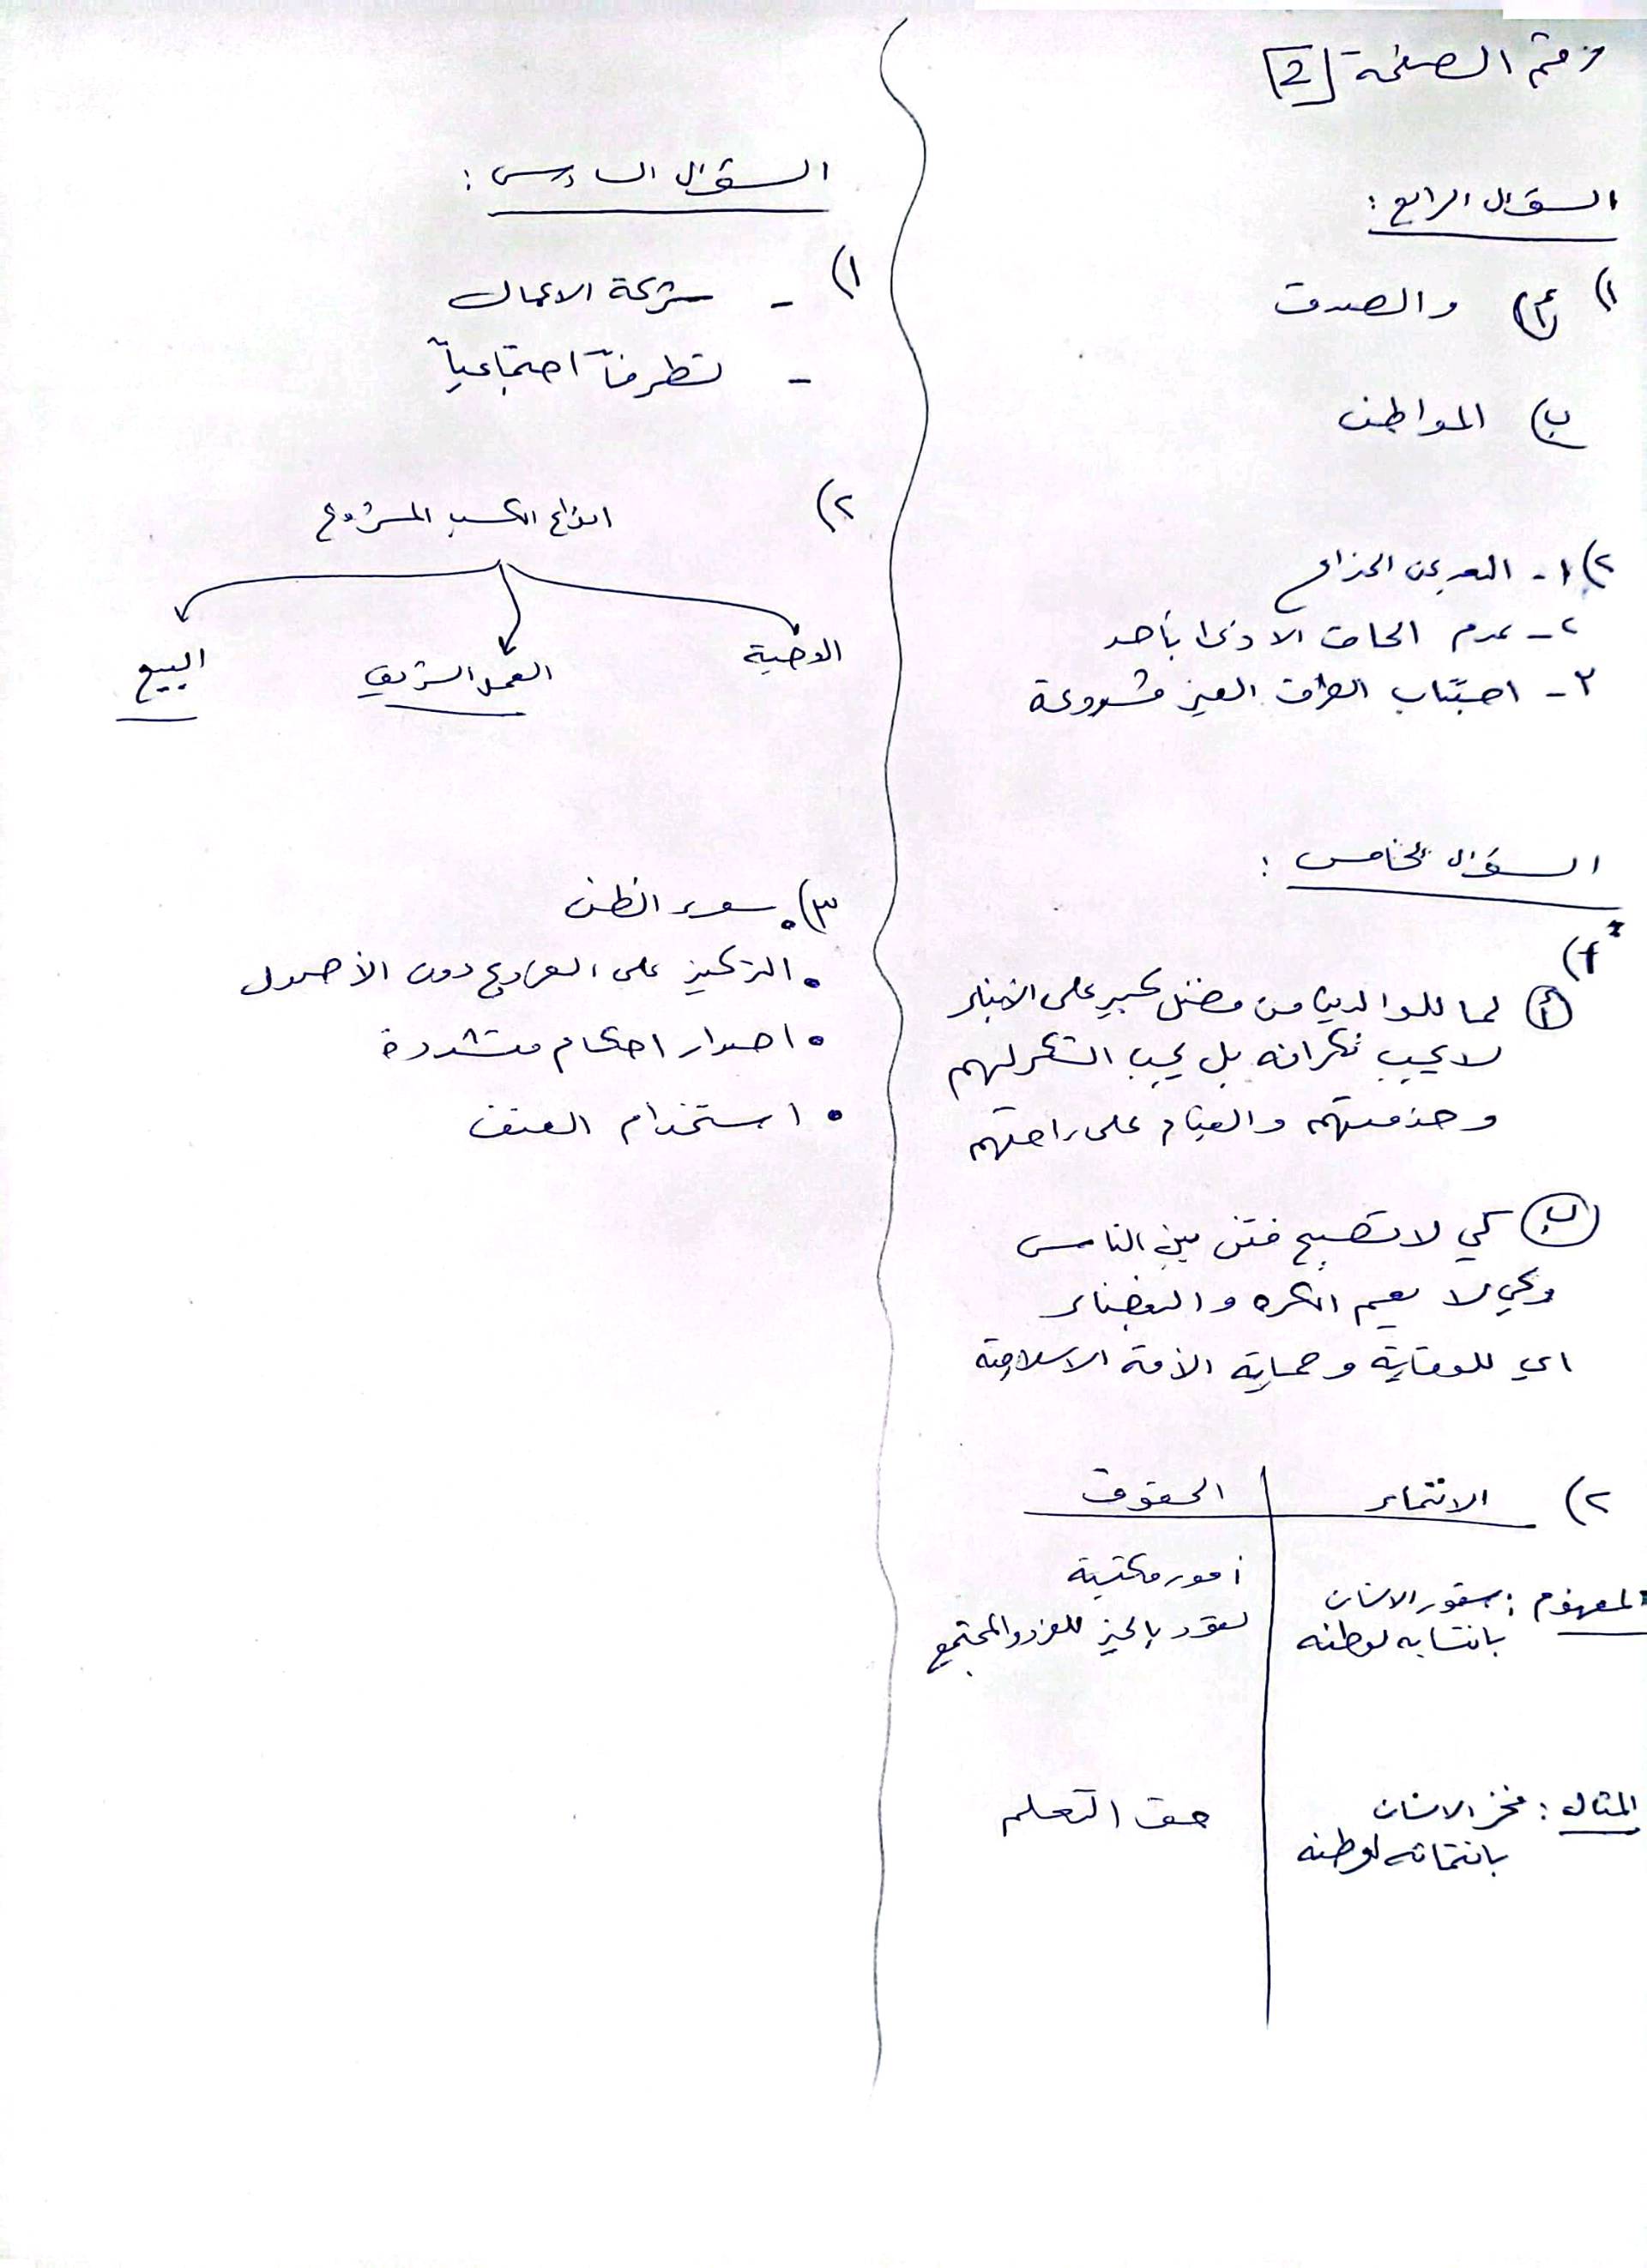 رقم الصفحة [2]
السؤال الرابع :
١) أ) والصدق
ب) المواطن
٢) ١- البعد عن الخداع
٢- عدم الحاق الاذى بأحد
٣- اجتناب الطرق الغير مشروعة
السؤال الخامس :
١)
أ) لما للوالدين من فضل كبير على الأبناء
لا يجب نكرانه بل يجب الشكر لهم
وخدمتهم والقيام على راحتهم
ب) كي لا تصبح فتن بين الناس
وكي لا يعم الكره والبغضاء
اي للوقاية وحماية الأمة الاسلامية
٢) الانتماء | الحقوق
المفهوم : شعور الانسان | أمور مكتسبة
بانتسابه لوطنه | تعود بالخير للفرد والمجتمع
المثال : فخر الانسان | حق التعلم
بانتمائه لوطنه
السؤال السادس :
١) - شركة الاعمال
- تطرفاً اجتماعياً
٢) انواع الكسب المشروع
الوصية العمل الشريف البيع
٣) • سوء الظن
• التركيز على الفروع دون الأصول
• اصدار احكام متشددة
• استخدام العنف